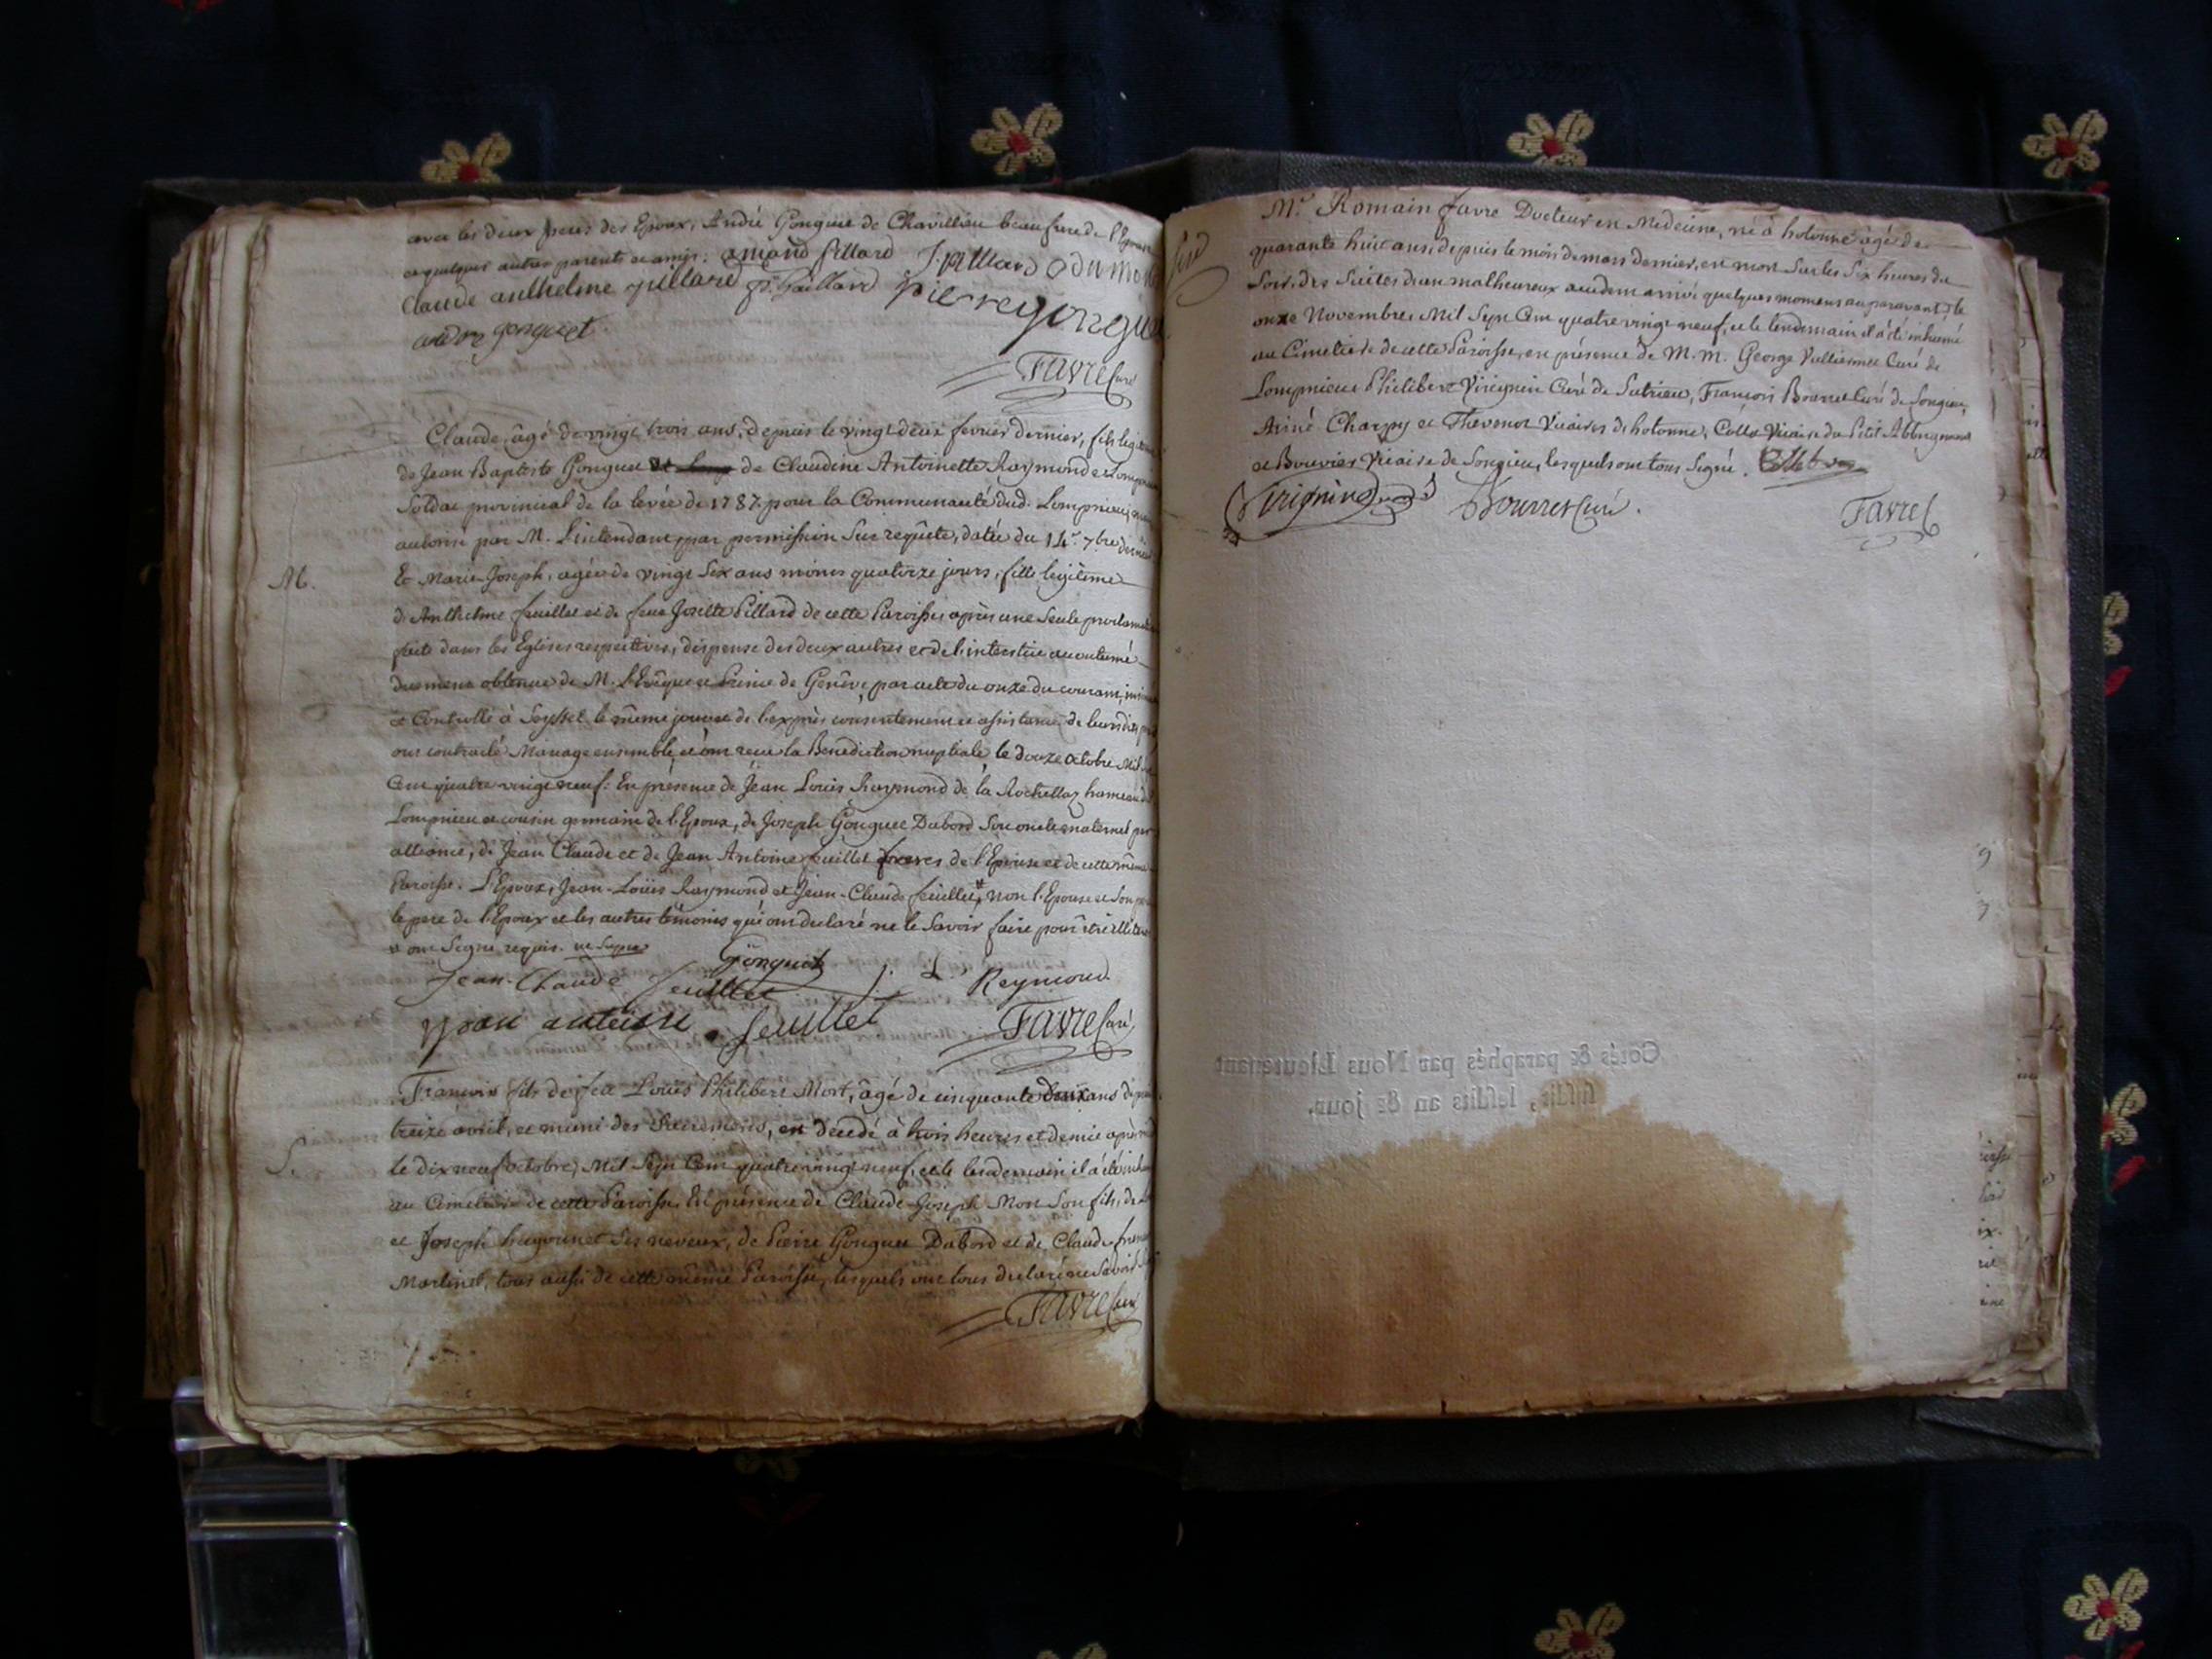 avec les deux peres des Epoux, André Gonguet de Chavillieu beaufrere de l'Epoux
et quelques autres parents et amis. amand pillard J. pillard
Claude anthelme pillard Pierre gonguet
andre gonguet
Favre Curé
Claude, âgé de vingt trois ans, depuis le vingt deux fevrier dernier, fils
de Jean Baptiste Gonguet de Claudine Antoinette Raymond
Soldat provincial de la levée de 1787. pour la Communauté dud. Lompnieu
autorisé par M. L'intendant par permission Sur requête, datée du 14e 7bre
M.
Et Marie-Joseph, agée de vingt Six ans moins quatorze jours, fille legitime
d'Anthelme feuillet et de feue Josette Pillard de cette Paroisse après une Seule
faite dans les Eglises respectives, dispense des deux autres et de l'interstice accoutumé
dument obtenue de M. l'Evêque et Prince de Genève par acte du onze du courant,
et Controllé à Seyssel le même jour et de l'exprès consentement et assistance de
ont contracté Mariage ensemble, et ont recu la Benediction nuptiale, le douze octobre Mil
Cent quatre vingt neuf: En présence de Jean Louis Raymond de la Rochettaz hameau de
Lompnieu et cousin germain de l'Epoux, de Joseph Gonguet Dabord Son oncle maternel par
alliance, de Jean Claude et de Jean Antoine feuillet freres de l'Epouse et de cette même
Paroisse. L'Epoux, Jean-Loüis Raymond et Jean-Claude feuillet, # non l'Epouse et Son
le pere de l'Epoux et les autres témoins qui ont declaré ne le Savoir faire pour
# ont Signé requis.
Gonguet
Jean-Claude Feuillet J. L. Reymond.
jean antoine feuillet Favre Curé
François fils de feu Louis Philibert Mort, âgé de cinquante deux ans
treize avril, et muni des Sacremens, est décédé à trois heures et demie après
S.
le dix neuf octobre, Mil Sept Cent quatre vingt neuf, et le lendemain il a été
au Cimetière de cette Paroisse En présence de Claude-Joseph Mort Son fils, de
et Joseph hugonnet Ses neveux, de Pierre Gonguet Dabord et de Claude
Martinet, tous aussi de cette même Paroisse, lesquels ont tous declaré ne Savoir
Favre Curé
Mr. Romain favre Docteur en Medecine, né à hotonne âgé de
quarante huit ans, depuis le mois de mars dernier, est mort Sur les Six heures du
Soir, des Suites d'un malheureux accident arrivé quelques momens auparavant, le
onze Novembre, Mil Sept Cent quatre vingt neuf, et le lendemain il a été inhumé
au Cimetiere de cette Paroisse, en présence de M. M. George Vulliermet Curé de
Lompnieu Philibert Virignin Curé de Sutrieu, François Bourret Curé de Songieu,
Charpy et Thevenot Vicaires de hotonne, Collet Vicaire du Petit Abbergement
et Bouvier Vicaire de Songieu, lesquels ont tous Signé.
Virignin Bourret Curé. Favre C
Cotés & paraphés par Nous Lieutenant
susdit, lesdits an & jour.